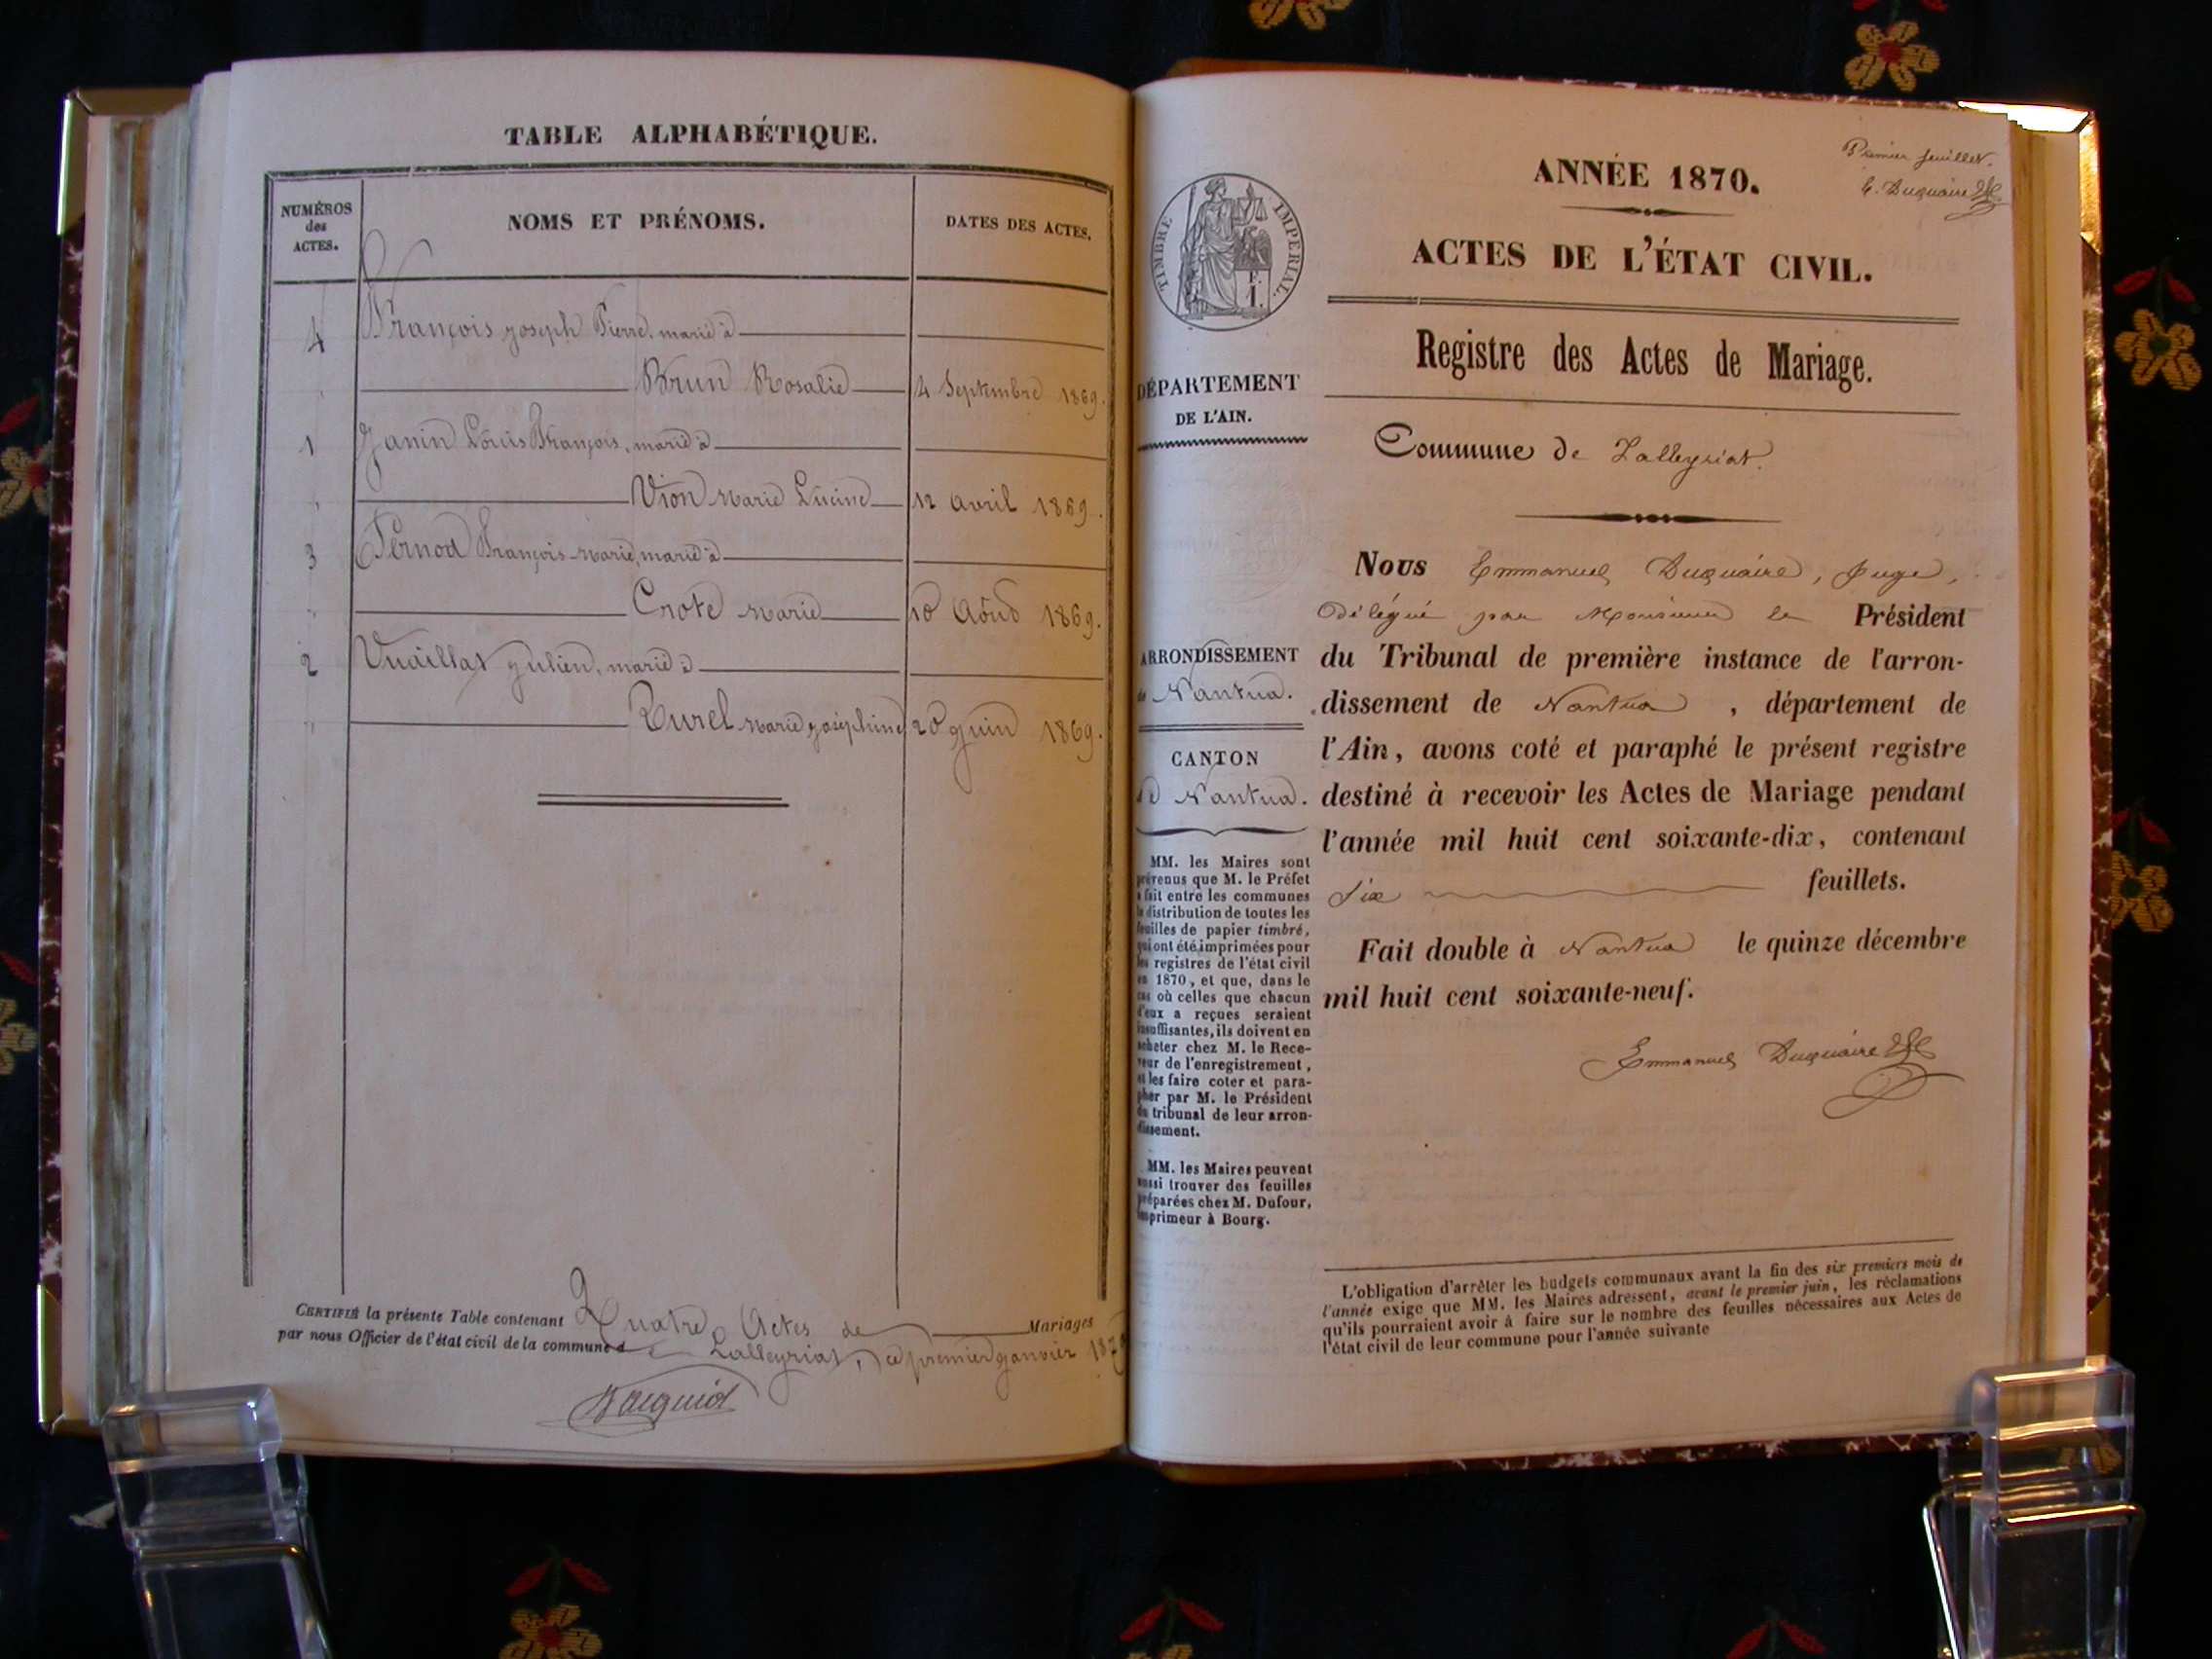 TABLE ALPHABÉTIQUE.
NUMÉROS
des
ACTES.
NOMS ET PRÉNOMS.
DATES DES ACTES.
4 François Joseph Pierre, marié à
Brun Rosalie 4 Septembre 1869.
1 Janin Louis François, marié à
Vion Marie Lucine 12 Avril 1869.
3 Pernod François-Marie, marié à
Crote Marie Août 1869.
2 Vuaillat Julien, marié à
Marie Joséphine 20 Juin 1869.
CERTIFIÉ la présente Table contenant Quatre Actes de Mariages
par nous Officier de l'état civil de la commune de Lalleyriat, ce premier Janvier 1870
Premier feuillet.
E. Duquaire
ANNÉE 1870.
ACTES DE L'ÉTAT CIVIL.
Registre des Actes de Mariage.
Commune de Lalleyriat.
TIMBRE IMPERIAL.
F.
1.
DÉPARTEMENT
DE L'AIN.
ARRONDISSEMENT
de Nantua.
CANTON
de Nantua.
MM. les Maires sont
prévenus que M. le Préfet
a fait entre les communes
la distribution de toutes les
feuilles de papier timbré,
qui ont été imprimées pour
les registres de l'état civil
en 1870, et que, dans le
cas où celles que chacun
d'eux a reçues seraient
insuffisantes, ils doivent en
acheter chez M. le Rece-
veur de l'enregistrement,
et les faire coter et para-
pher par M. le Président
du tribunal de leur arron-
dissement.
MM. les Maires peuvent
aussi trouver des feuilles
préparées chez M. Dufour,
imprimeur à Bourg.
Nous Emmanuel Duquaire, Juge,
Délégué par Monsieur le Président
du Tribunal de première instance de l'arron-
dissement de Nantua, département de
l'Ain, avons coté et paraphé le présent registre
destiné à recevoir les Actes de Mariage pendant
l'année mil huit cent soixante-dix, contenant
six feuillets.
Fait double à Nantua le quinze décembre
mil huit cent soixante-neuf.
Emmanuel Duquaire
L'obligation d'arrêter les budgets communaux avant la fin des six premiers mois de
l'année exige que MM. les Maires adressent, avant le premier juin, les réclamations
qu'ils pourraient avoir à faire sur le nombre des feuilles nécessaires aux Actes de
l'état civil de leur commune pour l'année suivante